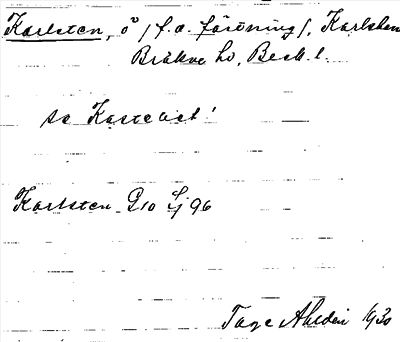 Karlsten, ö / f.a. förening /, Karlshamn
Bräkne hd, Blek. l.
se Kastellet!
Karlsten G10 dj 96
Tage Ahldén 1930